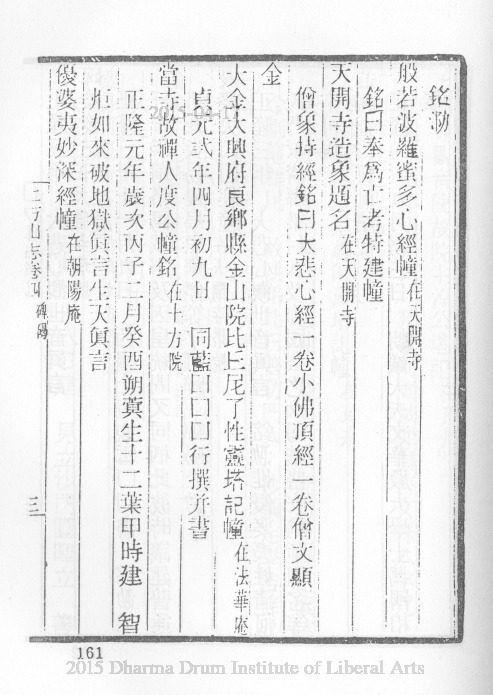 銘泐
般若波羅蜜多心經幢在天開寺
銘曰奉爲亡考特建幢
天開寺造象題名在天開寺
僧象持經銘曰大悲心經一卷小佛頂經一卷僧文顯
金
大金大興府良鄉縣金山院比丘尼了性靈塔記幢在法華庵
貞元貳年四月初九日 同藍口口口行撰幷書
當寺故禪人度公幢銘在十方院
正隆元年歲次丙子二月癸酉朔蓂生十二葉甲時建 智
炬如來破地獄眞言生天眞言
優婆夷妙深經幢在朝陽庵
上方山志卷四 碑碣
三
161
2015 Dharma Drum Institute of Liberal Arts